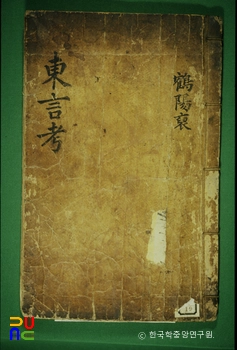 鶴陽裒
東言考
© 한국학중앙연구원.